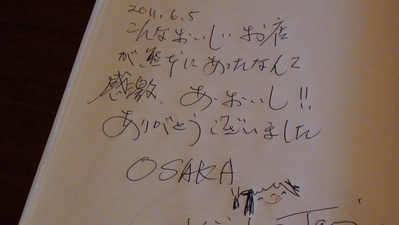 2011.6.5
こんなおいしいお店
が熊本にあったなんて
感激。あ、おいし!!
ありがとうございました
OSAKA